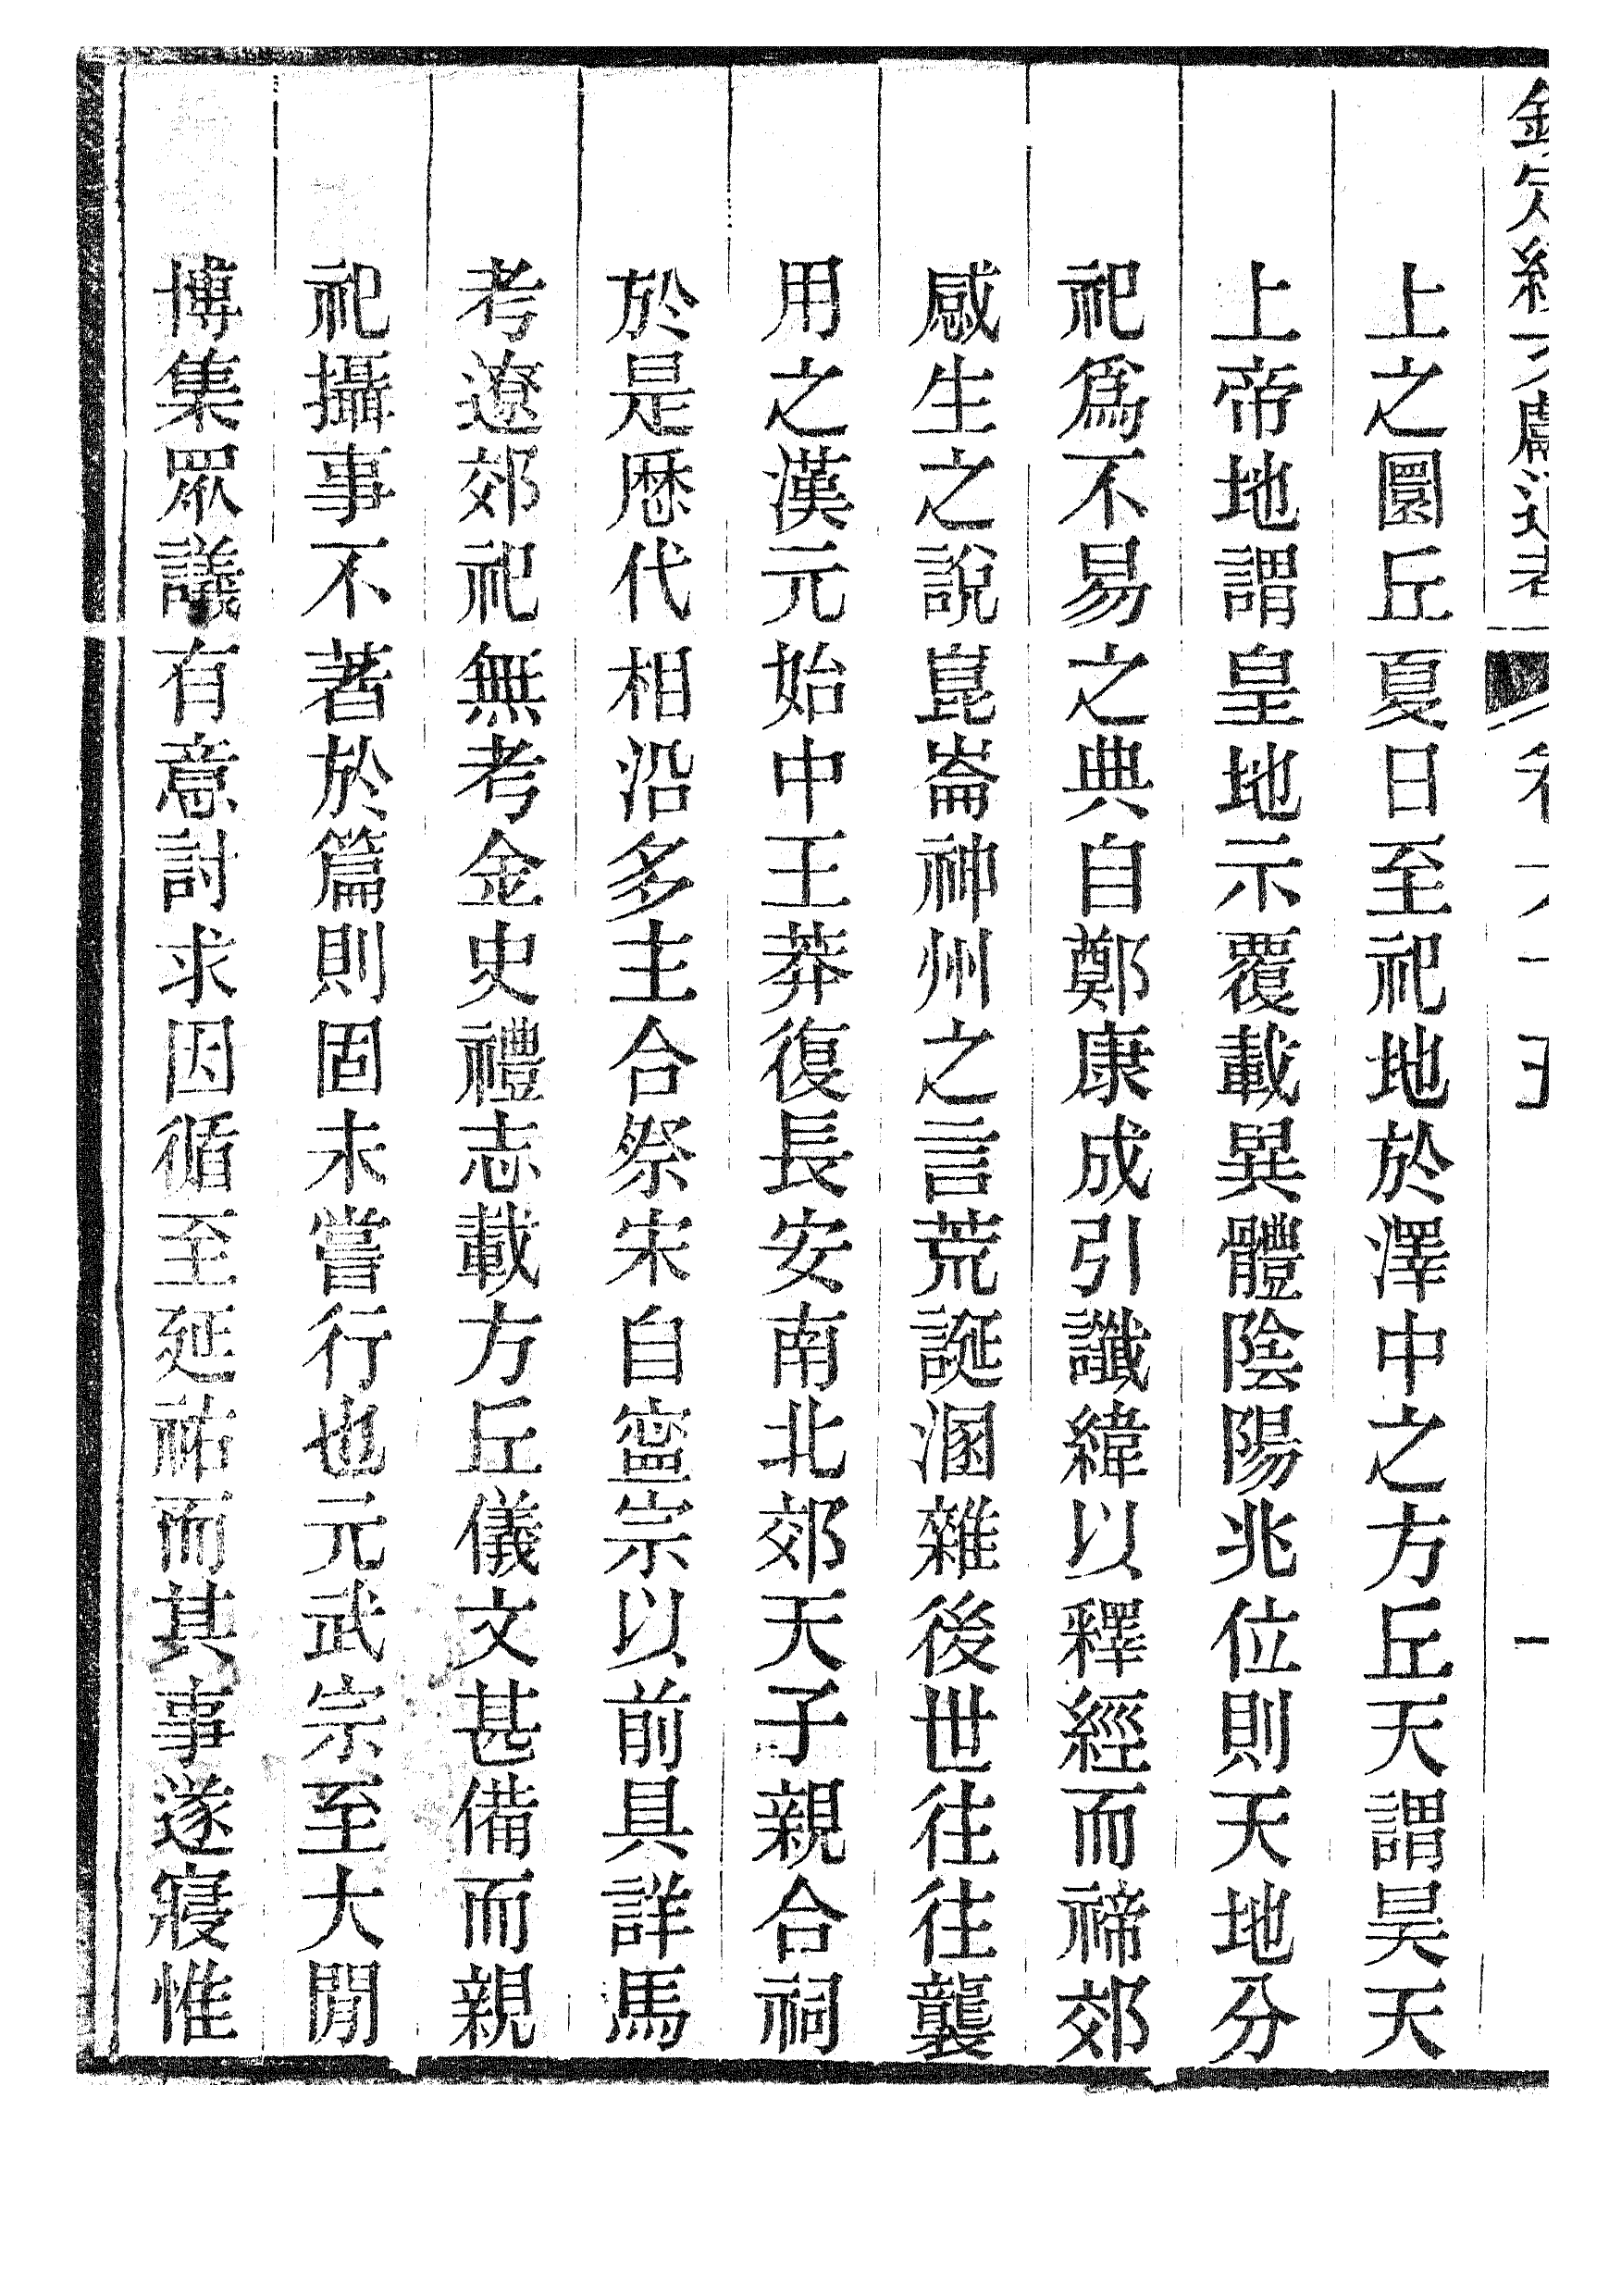 欽定續文獻通考
上之圜丘夏日至祀地於澤中之方丘天謂昊天
上帝地謂皇地示覆載異體陰陽兆位則天地分
祀爲不易之典自鄭康成引讖緯以釋經而禘郊
感生之說崑崙神州之言荒誕溷雜後世往往襲
用之漢元始中王莽復長安南北郊天子親合祠
於是歴代相沿多主合祭宋自寧宗以前具詳馬
考遼郊祀無考金史禮志載方丘儀文甚備而親
祀攝事不著於篇則固未嘗行也元武宗至大閒
博集眾議有意討求因循至延祐而其事遂寢惟